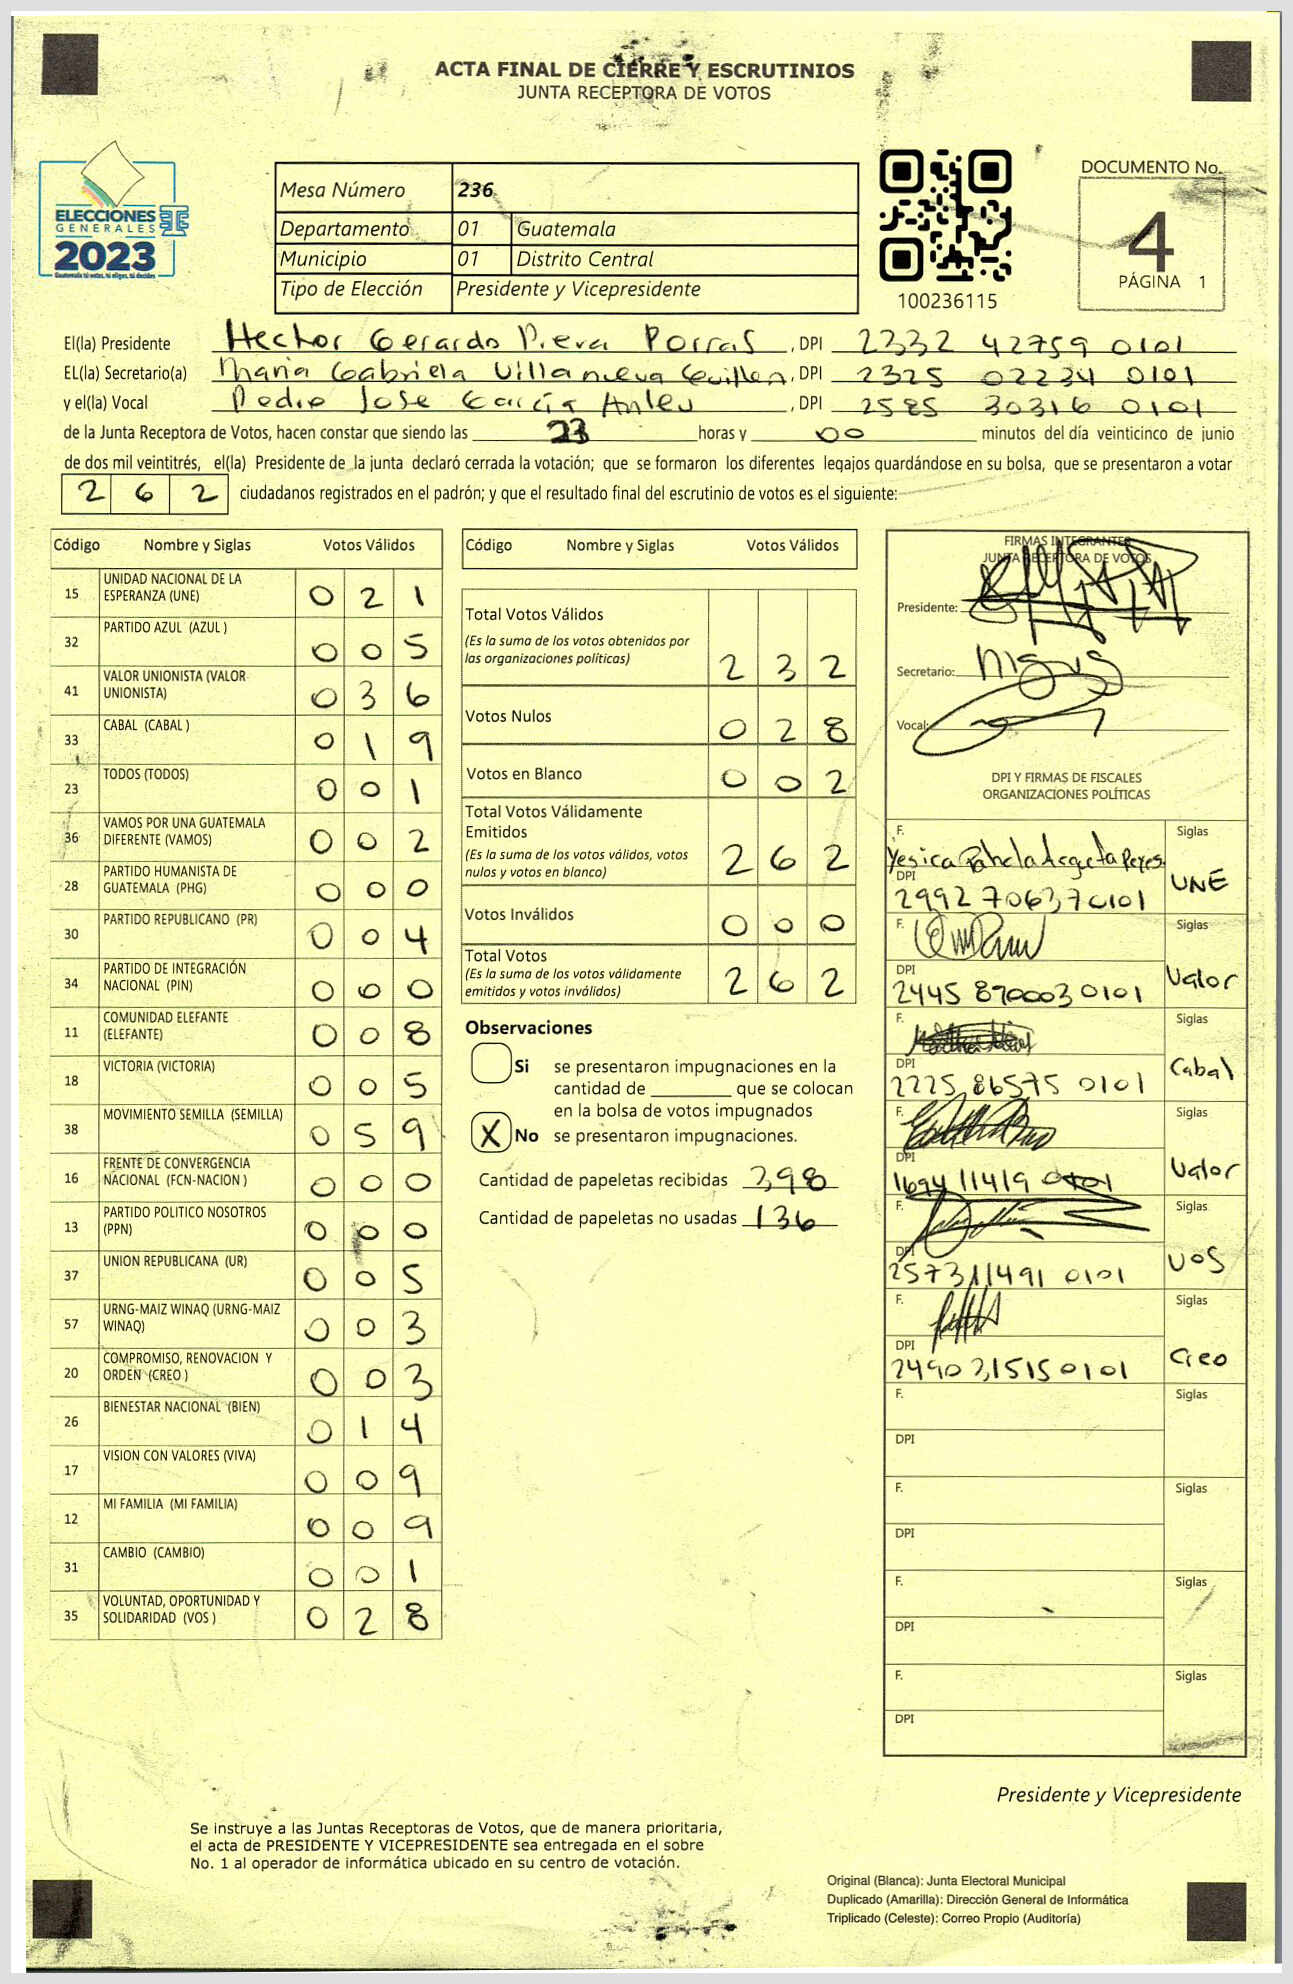 ACTA FINAL DE CIERRE Y ESCRUTINIOS
JUNTA RECEPTORA DE VOTOS
ELECCIONES
GENERALES
2023
Guatemala tú votas, tú eliges, tú decides
Mesa Número 236
Departamento 01 Guatemala
Municipio 01 Distrito Central
Tipo de Elección Presidente y Vicepresidente
100236115
DOCUMENTO No.
4
PÁGINA 1
El(la) Presidente Hector Gerardo Porras, DPI 2332 42759 0101
EL(la) Secretario(a) Maria Gabriela Villanueva Guillen, DPI 2325 02234 0101
y el(la) Vocal Pedro Jose Garcia, DPI 2585 30316 0101
de la Junta Receptora de Votos, hacen constar que siendo las 23 horas y 00 minutos del día veinticinco de junio
de dos mil veintitrés, el(la) Presidente de la junta declaró cerrada la votación; que se formaron los diferentes legajos quardándose en su bolsa, que se presentaron a votar
2 6 2 ciudadanos registrados en el padrón; y que el resultado final del escrutinio de votos es el siguiente:
Código Nombre y Siglas Votos Válidos
15 UNIDAD NACIONAL DE LA ESPERANZA (UNE) 0 2 1
32 PARTIDO AZUL (AZUL ) 0 0 5
41 VALOR UNIONISTA (VALOR UNIONISTA) 0 3 6
33 CABAL (CABAL ) 0 1 9
23 TODOS (TODOS) 0 0 1
36 VAMOS POR UNA GUATEMALA DIFERENTE (VAMOS) 0 0 2
28 PARTIDO HUMANISTA DE GUATEMALA (PHG) 0 0 0
30 PARTIDO REPUBLICANO (PR) 0 0 4
34 PARTIDO DE INTEGRACIÓN NACIONAL (PIN) 0 0 0
11 COMUNIDAD ELEFANTE (ELEFANTE) 0 0 8
18 VICTORIA (VICTORIA) 0 0 5
38 MOVIMIENTO SEMILLA (SEMILLA) 0 5 9
16 FRENTE DE CONVERGENCIA NACIONAL (FCN-NACION ) 0 0 0
13 PARTIDO POLITICO NOSOTROS (PPN) 0 0 0
37 UNION REPUBLICANA (UR) 0 0 5
57 URNG-MAIZ WINAQ (URNG-MAIZ WINAQ) 0 0 3
20 COMPROMISO, RENOVACION Y ORDEN (CREO ) 0 0 3
26 BIENESTAR NACIONAL (BIEN) 0 1 4
17 VISION CON VALORES (VIVA) 0 0 9
12 MI FAMILIA (MI FAMILIA) 0 0 9
31 CAMBIO (CAMBIO) 0 0 1
35 VOLUNTAD, OPORTUNIDAD Y SOLIDARIDAD (VOS ) 0 2 8
Código Nombre y Siglas Votos Válidos
Total Votos Válidos
(Es la suma de los votos obtenidos por
las organizaciones políticas) 2 3 2
Votos Nulos 0 2 8
Votos en Blanco 0 0 2
Total Votos Válidamente
Emitidos
(Es la suma de los votos válidos, votos
nulos y votos en blanco) 2 6 2
Votos Inválidos 0 0 0
Total Votos
(Es la suma de los votos válidamente
emitidos y votos inválidos) 2 6 2
Observaciones
Si se presentaron impugnaciones en la
cantidad de ________ que se colocan
en la bolsa de votos impugnados
X No se presentaron impugnaciones.
Cantidad de papeletas recibidas 398
Cantidad de papeletas no usadas 136
FIRMAS INTEGRANTES
JUNTA RECEPTORA DE VOTOS
Presidente:
Secretario:
Vocal:
DPI Y FIRMAS DE FISCALES
ORGANIZACIONES POLÍTICAS
F. Yesica Argueta Reyes Siglas
DPI 2992 70637 0101 UNE
F. Siglas
DPI 2445 870003 0101 Valor
F. Siglas
DPI 2225 86575 0101 Cabal
F. Siglas
DPI 1694 11419 0101 Valor
F. Siglas
DPI 2573 11491 0101 VOS
F. Siglas
DPI 2490 31515 0101 Creo
F. Siglas
DPI
F. Siglas
DPI
F. Siglas
DPI
F. Siglas
DPI
Presidente y Vicepresidente
Se instruye a las Juntas Receptoras de Votos, que de manera prioritaria,
el acta de PRESIDENTE Y VICEPRESIDENTE sea entregada en el sobre
No. 1 al operador de informática ubicado en su centro de votación.
Original (Blanca): Junta Electoral Municipal
Duplicado (Amarilla): Dirección General de Informática
Triplicado (Celeste): Correo Propio (Auditoría)